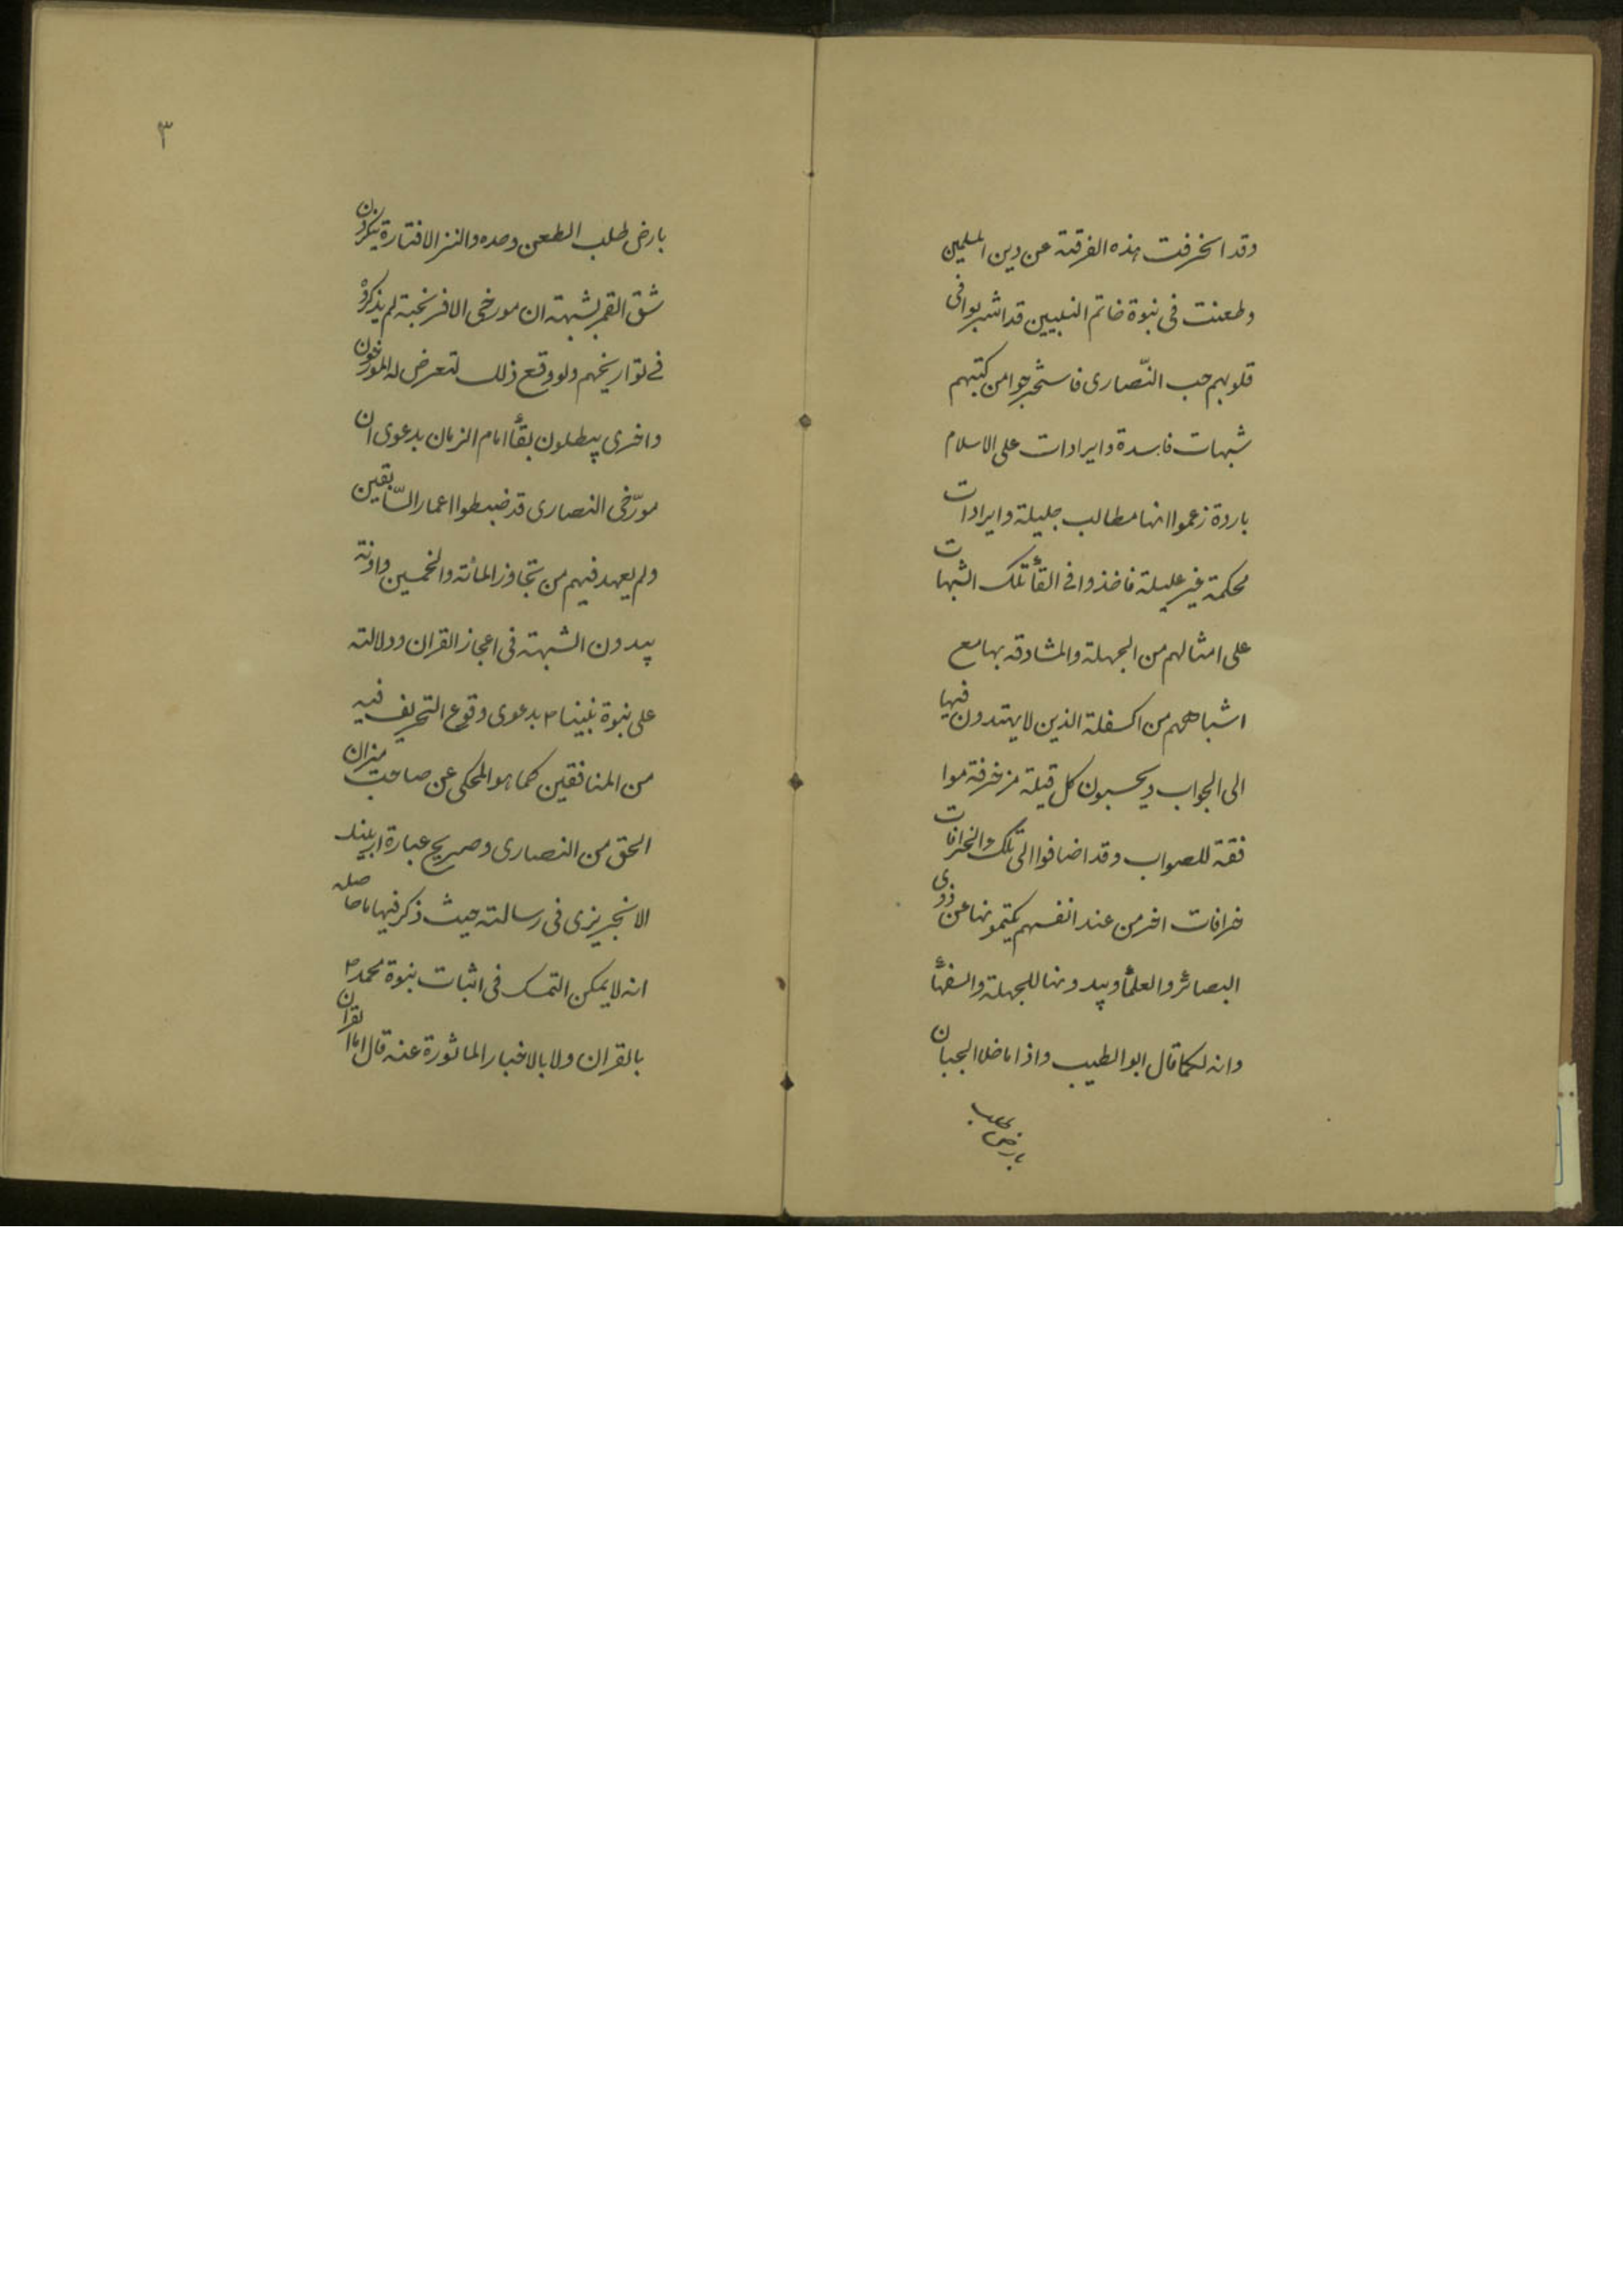 وقد انحرفت هذه الفرقة عن دين المسلمين
وطعنت فى نبوة خاتم النبيين قد اشربوا فى
قلوبهم حب النّصارى فاستخرجوا من كتبهم
شبهات فاسدة وايرادات على الاسلام
باردة زعموا انها مطالب جليلة وايرادات
محكمة غير عليلة فاخذوا فى القأ تلك الشبهات
على امثالهم من الجهلة والمشادقه بها مع
اشباههم من السفلة الذين لا يهتدون فيها
الى الجواب ويحسبون كل قيلة مزخرفة موا
فقة للصواب وقد اضافوا الى تلك الخرافات
خرافات اخر من عند انفسهم يكتمونها عن ذوى
البصائر والعلمأ ويبدونها للجهلة والسفهأ
وانه لكما قال ابو الطيب واذا ما خلا الجبان
بارض طلب
٣
بارض طلب الطعن وحده والنزالا فتارة ينكرون
شق القمر لشبهة ان مورخى الافرنجية لم يذكروه
فے تواريخهم ولو وقع ذلك لتعرض له المورخون
واخرى يبطلون بقأ امام الزمان بدعوى ان
مورّخى النصارى قد ضبطوا اعمار السّابقين
ولم يعهد فيهم من تجاوز المائة والخمسين وآونة
يبدون الشبهة فى اعجاز القران ودلالته
على نبوة نبينا ص بدعوى وقوع التحريف فيه
من المنافقين كما هو المحكى عن صاحب ميزان
الحق من النصارى وصريح عبارة
الانجريزى فى رسالته حيث ذكر فيها ما حاصله
انه لا يمكن التمسك فى اثبات نبوة محمد ص
بالقران ولا بالاخبار الماثورة عنه قال اما القران